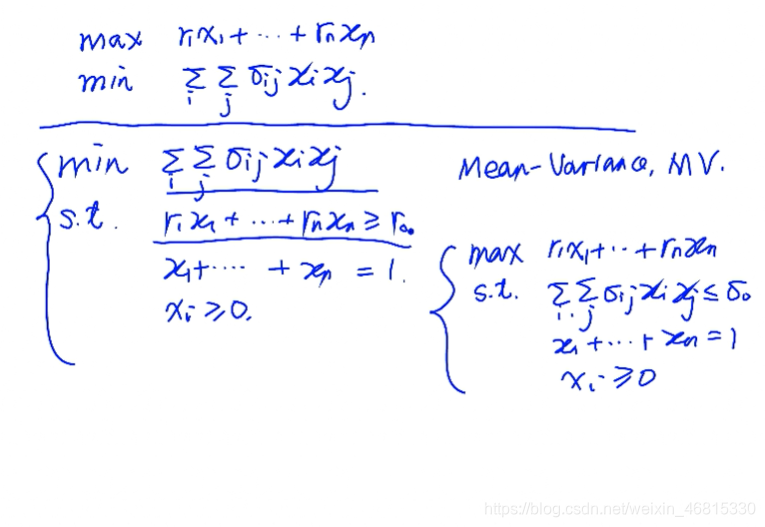 max r₁x₁ + ⋯ + rₙxₙ
min Σᵢ Σⱼ σᵢⱼ xᵢ xⱼ.
min Σᵢ Σⱼ σᵢⱼ xᵢ xⱼ
s.t. r₁x₁ + ⋯ + rₙxₙ ≥ r₀.
x₁ + ⋯ + xₙ = 1.
xᵢ ≥ 0.
Mean-Variance, MV.
max r₁x₁ + ⋯ + rₙxₙ
s.t. Σᵢ Σⱼ σᵢⱼ xᵢ xⱼ ≤ σ₀
x₁ + ⋯ + xₙ = 1
xᵢ ≥ 0
https://blog.csdn.net/weixin_46815330